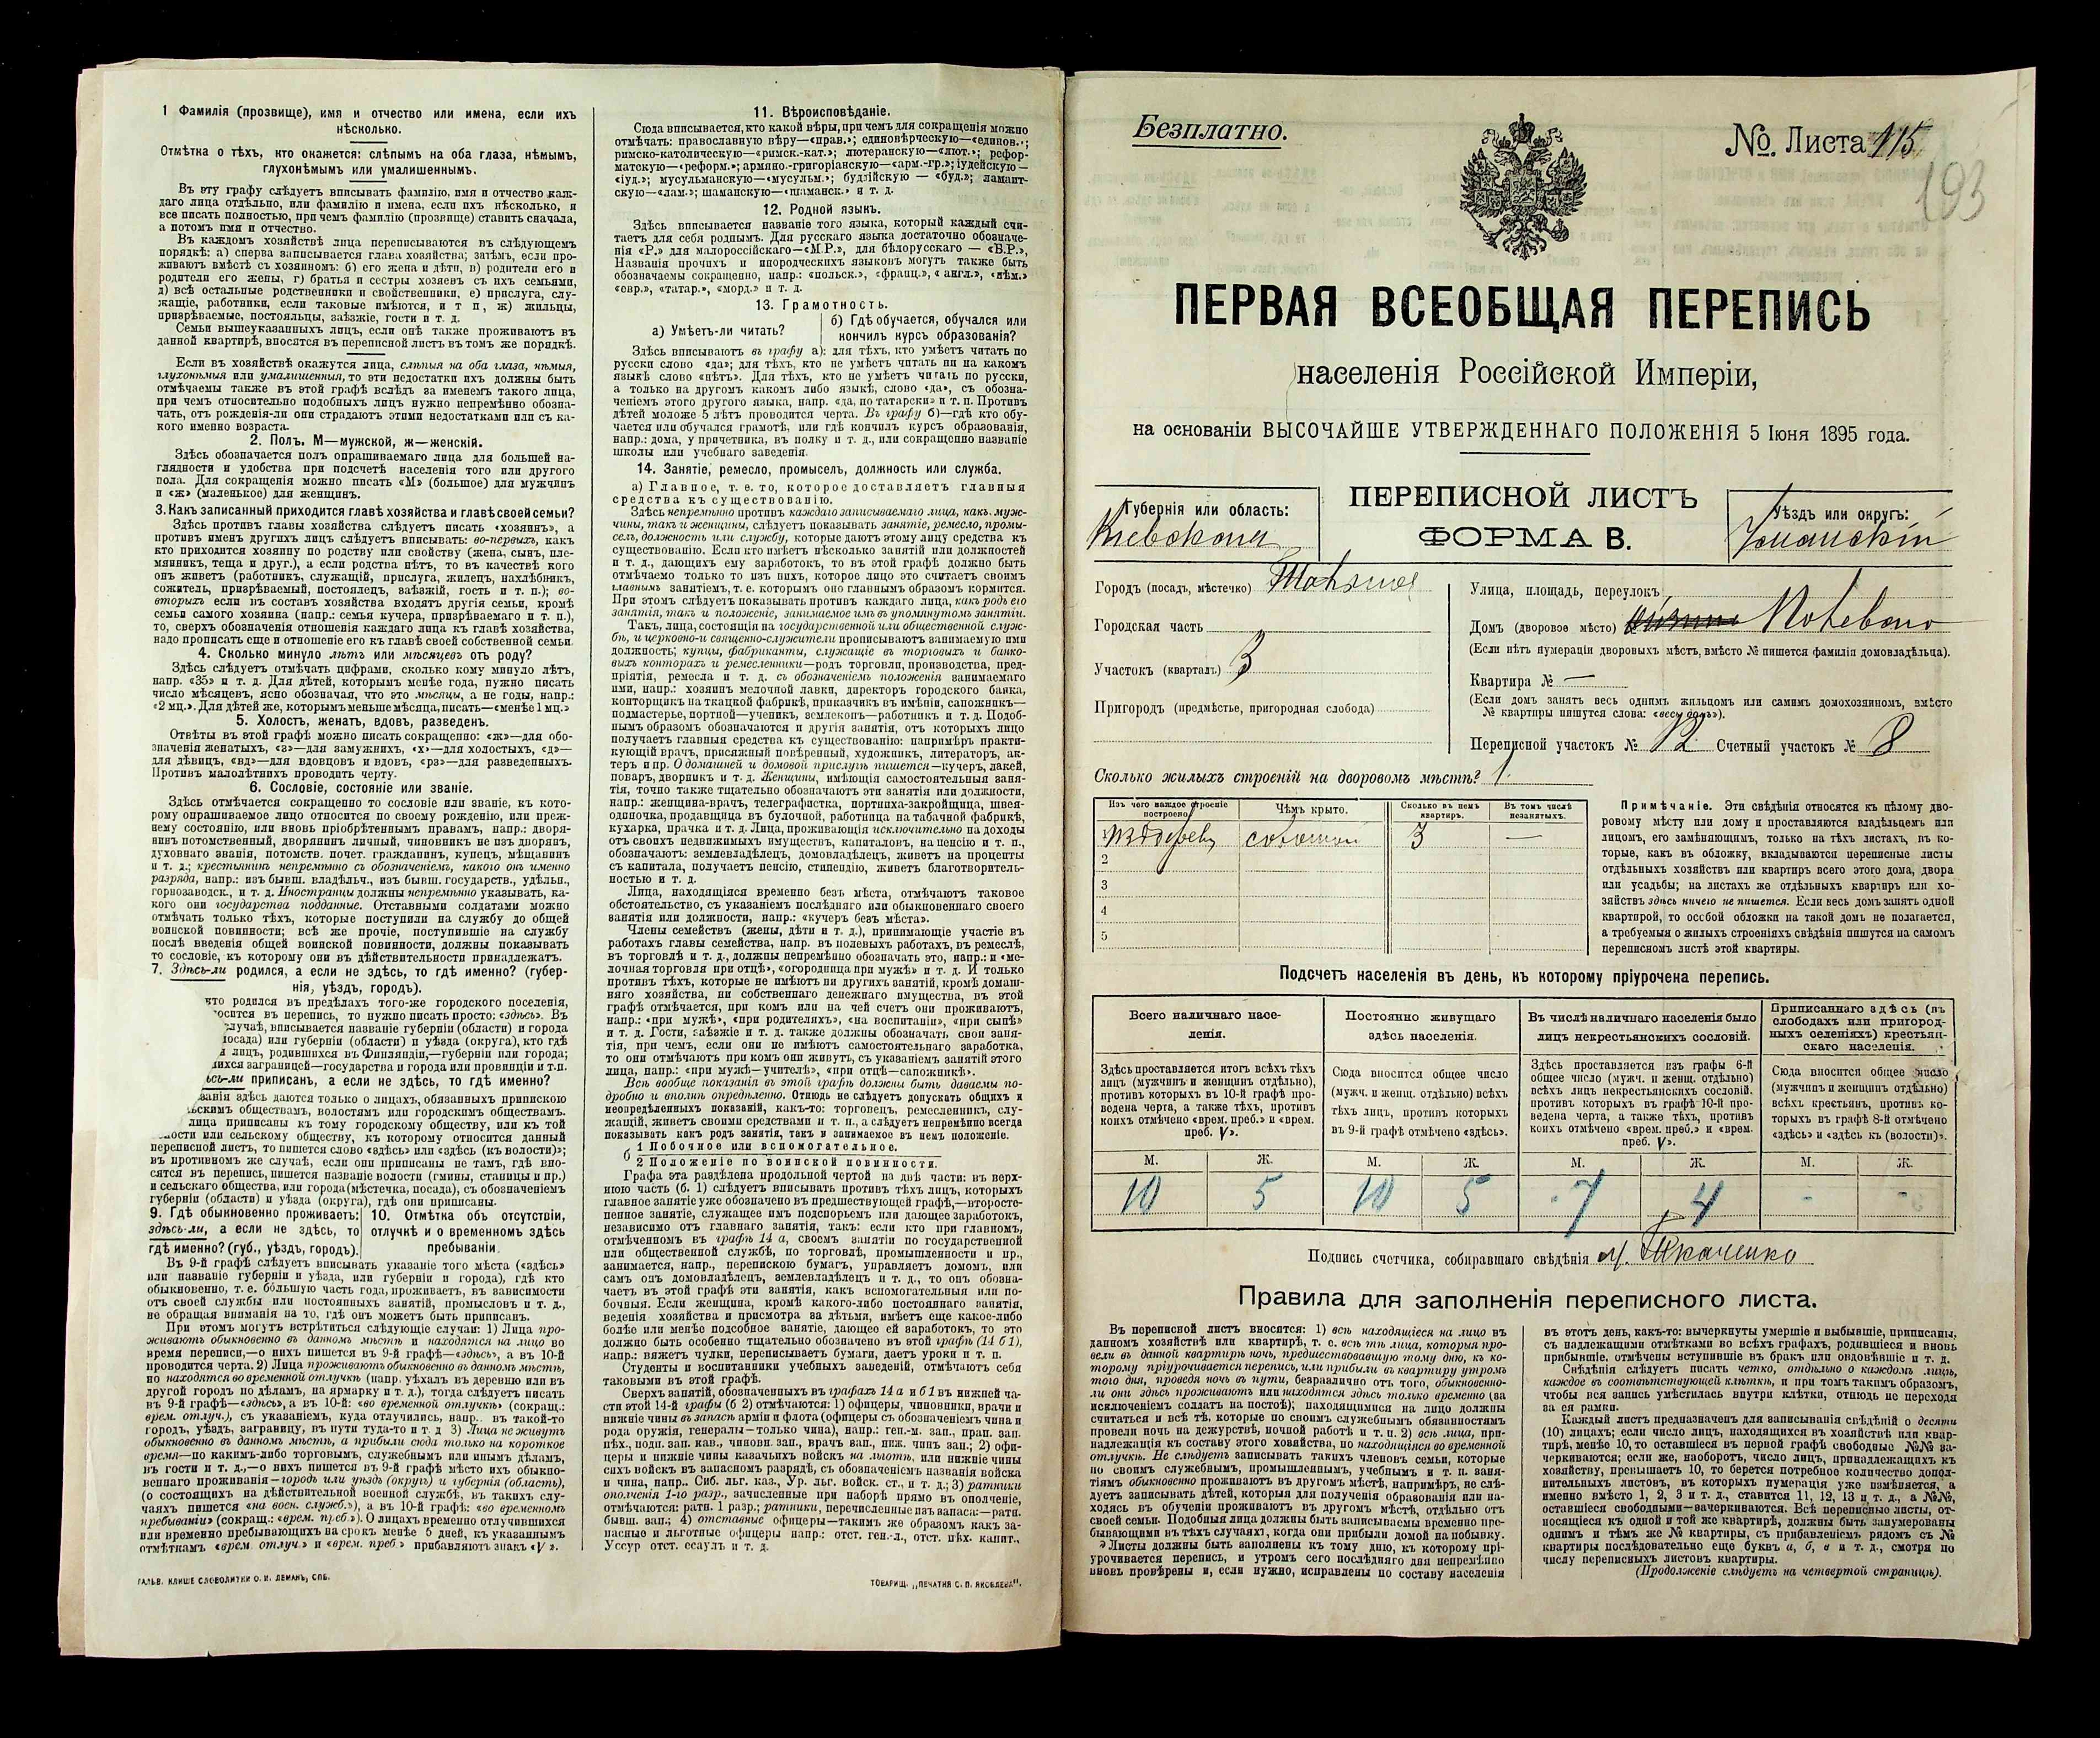 1 Фамилія (прозвище), имя и отчество или имена, если ихъ
нѣсколько.
Отмѣтка о тѣхъ, кто окажется: слѣпымъ на оба глаза, нѣмымъ,
глухонѣмымъ или умалишеннымъ.
Въ эту графу слѣдуетъ вписывать фамилію, имя и отчество каж-
даго лица отдѣльно, или фамилію и имена, если ихъ нѣсколько, и
все писать полностью, при чемъ фамилію (прозвище) ставить сначала,
а потомъ имя и отчество.
Въ каждомъ хозяйствѣ лица переписываются въ слѣдующемъ
порядкѣ: а) сперва записывается глава хозяйства; затѣмъ, если про-
живаютъ вмѣстѣ съ хозяиномъ: б) его жена и дѣти, в) родители его и
родители его жены, г) братья и сестры хозяевъ съ ихъ семьями,
д) всѣ остальные родственники и свойственники, е) прислуга, слу-
жащіе, работники, если таковые имѣются, и т п, ж) жильцы,
призрѣваемые, постояльцы, заѣзжіе, гости и т. д.
Семьи вышеуказанныхъ лицъ, если онѣ также проживаютъ въ
данной квартирѣ, вносятся въ переписной листъ въ томъ же порядкѣ.
Если въ хозяйствѣ окажутся лица, слѣпыя на оба глаза, нѣмыя,
глухонѣмыя или умалишенныя, то эти недостатки ихъ должны быть
отмѣчаемы также въ этой графѣ вслѣдъ за именемъ такого лица,
при чемъ относительно подобныхъ лицъ нужно непремѣнно обозна-
чать, отъ рожденія-ли они страдаютъ этими недостатками или съ ка-
кого именно возраста.
2. Полъ. М—мужской, ж—женскій.
Здѣсь обозначается полъ опрашиваемаго лица для большей на-
глядности и удобства при подсчетѣ населенія того или другого
пола. Для сокращенія можно писать «М» (большое) для мужчинъ
и «ж» (маленькое) для женщинъ.
3. Какъ записанный приходится главѣ хозяйства и главѣ своей семьи?
Здѣсь противъ главы хозяйства слѣдуетъ писать «хозяинъ», а
противъ именъ другихъ лицъ слѣдуетъ вписывать: во-первыхъ, какъ
кто приходится хозяину по родству или свойству (жена, сынъ, пле-
мянникъ, теща и друг.), а если родства нѣтъ, то въ качествѣ кого
онъ живетъ (работникъ, служащій, прислуга, жилецъ, нахлѣбникъ,
сожитель, призрѣваемый, постоялецъ, заѣзжій, гость и т. п.); во-
вторыхъ если въ составъ хозяйства входятъ другія семьи, кромѣ
семьи самого хозяина (напр.: семья кучера, призрѣваемаго и т. п.),
то, сверхъ обозначенія отношенія каждаго лица къ главѣ хозяйства,
надо прописать еще и отношеніе его къ главѣ своей собственной семьи.
4. Сколько минуло лѣтъ или мѣсяцевъ отъ роду?
Здѣсь слѣдуетъ отмѣчать цифрами, сколько кому минуло лѣтъ,
напр. «35» и т. д. Для дѣтей, которымъ менѣе года, нужно писать
число мѣсяцевъ, ясно обозначая, что это мѣсяцы, а не годы, напр.:
«2 мц.». Для дѣтей же, которымъ меньше мѣсяца, писать—«менѣе 1 мц.»
5. Холостъ, женатъ, вдовъ, разведенъ.
Отвѣты въ этой графѣ можно писать сокращенно: «ж»—для обо-
значенія женатыхъ, «з»—для замужнихъ, «х»—для холостыхъ, «д»—
для дѣвицъ, «вд»—для вдовцовъ и вдовъ, «рз»—для разведенныхъ.
Противъ малолѣтнихъ проводить черту.
6. Сословіе, состояніе или званіе.
Здѣсь отмѣчается сокращенно то сословіе или званіе, къ кото-
рому опрашиваемое лицо относится по своему рожденію, или преж-
нему состоянію, или вновь пріобрѣтеннымъ правамъ, напр.: дворя-
нинъ потомственный, дворянинъ личный, чиновникъ не изъ дворянъ,
духовнаго званія, потомств. почет. гражданинъ, купецъ, мѣщанинъ
и т. д.; крестьянинъ непремѣнно съ обозначеніемъ, какого онъ именно
разряда, напр.: изъ бывш. владѣльч., изъ бывш. государств., удѣльн.,
горнозаводск., и т. д. Иностранцы должны непремѣнно указывать, ка-
кого они государства подданные. Отставными солдатами можно
отмѣчать только тѣхъ, которые поступили на службу до общей
воинской повинности; всѣ же прочіе, поступившіе на службу
послѣ введенія общей воинской повинности, должны показывать
то сословіе, къ которому они въ дѣйствительности принадлежатъ.
7. Здѣсь-ли родился, а если не здѣсь, то гдѣ именно? (губер-
нія, уѣздъ, городъ).
кто родился въ предѣлахъ того-же городского поселенія,
носится въ перепись, то нужно писать просто: «здѣсь». Въ
случаѣ, вписывается названіе губерніи (области) и города
посада) или губерніи (области) и уѣзда (округа), кто гдѣ
лицъ, родившихся въ Финляндіи,—губерніи или города;
шихся заграницей—государства и города или провинціи и т.п.
сь-ли приписанъ, а если не здѣсь, то гдѣ именно?
занія здѣсь даются только о лицахъ, обязанныхъ припискою
ьскимъ обществамъ, волостямъ или городскимъ обществамъ.
лица приписаны къ тому городскому обществу, или къ той
ности или сельскому обществу, къ которому относится данный
переписной листъ, то пишется слово «здѣсь» или «здѣсь (къ волости)»;
въ противномъ же случаѣ, если они приписаны не тамъ, гдѣ вно-
сятся въ перепись, пишется названіе волости (гмины, станицы и пр.)
и сельскаго общества, или города (мѣстечка, посада), съ обозначеніемъ
губерніи (области) и уѣзда (округа), гдѣ они приписаны.
9. Гдѣ обыкновенно проживаетъ:
здѣсь-ли, а если не здѣсь, то
гдѣ именно? (губ., уѣздъ, городъ).
10. Отмѣтка объ отсутствіи,
отлучкѣ и о временномъ здѣсь
пребываніи.
Въ 9-й графѣ слѣдуетъ вписывать указаніе того мѣста («здѣсь»
или названіе губерніи и уѣзда, или губерніи и города), гдѣ кто
обыкновенно, т. е. бо́льшую часть года, проживаетъ, въ зависимости
отъ своей службы или постоянныхъ занятій, промысловъ и т. д.,
не обращая вниманія на то, гдѣ онъ можетъ быть приписанъ.
При этомъ могутъ встрѣтиться слѣдующіе случаи: 1) Лица про-
живаютъ обыкновенно въ данномъ мѣстѣ и находятся на лицо во
время переписи,—о нихъ пишется въ 9-й графѣ—«здѣсь», а въ 10-й
проводится черта. 2) Лица проживаютъ обыкновенно въ данномъ мѣстѣ,
но находятся во временной отлучкѣ (напр. уѣхалъ въ деревню или въ
другой городъ по дѣламъ, на ярмарку и т. д.), тогда слѣдуетъ писать
въ 9-й графѣ—«здѣсь», а въ 10-й: «во временной отлучкѣ» (сокращ.:
врем. отлуч.), съ указаніемъ, куда отлучились, напр.. въ такой-то
городъ, уѣздъ, заграницу, въ пути туда-то и т. д 3) Лица не живутъ
обыкновенно въ данномъ мѣстѣ, а прибыли сюда только на короткое
время—по какимъ-либо торговымъ, служебнымъ или инымъ дѣламъ,
въ гости и т. д.,—о нихъ пишется въ 9-й графѣ мѣсто ихъ обыкно-
веннаго проживанія—городъ или уѣздъ (округъ) и губернія (область),
(о состоящихъ на дѣйствительной военной службѣ, въ такихъ слу-
чаяхъ пишется «на воен. служб.»), а въ 10-й графѣ: «во временномъ
пребываніи» (сокращ.: «врем. преб.»). О лицахъ временно отлучившихся
или временно пребывающихъ на срокъ менѣе 5 дней, къ указаннымъ
отмѣткамъ «врем. отлуч.» и «врем. преб.» прибавляютъ знакъ «V».
ГАЛЬВ. КЛИШЕ СЛОВОЛИТНИ О. И. ЛЕМАНЪ, СПБ.
11. Вѣроисповѣданіе.
Сюда вписывается, кто какой вѣры, при чемъ для сокращенія можно
отмѣчать: православную вѣру—«прав.»; единовѣрческую—«единов.»;
римско-католическую—«римск.-кат.»; лютеранскую—«лют.»; рефор-
матскую—«реформ.»; армяно.-григоріанскую—«арм.-гр.»; іудейскую—
«іуд.»; мусульманскую—«мусульм.»; буддійскую — «буд.»; ламаит-
скую—«лам.»; шаманскую—«шаманск.» и т. д.
12. Родной языкъ.
Здѣсь вписывается названіе того языка, который каждый счи-
таетъ для себя роднымъ. Для русскаго языка достаточно обозначе-
нія «Р.» для малороссійскаго—«М.Р.», для бѣлорусскаго — «Б.Р.»,
Названія прочихъ и инородческихъ языковъ могутъ также быть
обозначаемы сокращенно, напр.: «польск.», «франц.», «англ.», «нѣм.»
«евр.», «татар.», «морд.» и т. д.
13. Грамотность.
а) Умѣетъ-ли читать?
б) Гдѣ обучается, обучался или
кончилъ курсъ образованія?
Здѣсь вписываютъ въ графу а): для тѣхъ, кто умѣетъ читать по
русски слово «да»; для тѣхъ, кто не умѣетъ читать ни на какомъ
языкѣ слово «нѣтъ». Для тѣхъ, кто не умѣетъ читать по русски,
а только на другомъ какомъ либо языкѣ, слово «да», съ обозна-
ченіемъ этого другого языка, напр. «да, по татарски» и т. п. Противъ
дѣтей моложе 5 лѣтъ проводится черта. Въ графу б)—гдѣ кто обу-
чается или обучался грамотѣ, или гдѣ кончилъ курсъ образованія,
напр.: дома, у причетника, въ полку и т. д., или сокращенно названіе
школы или учебнаго заведенія.
14. Занятіе, ремесло, промыселъ, должность или служба.
а) Главное, т. е. то, которое доставляетъ главныя
средства къ существованію.
Здѣсь непремѣнно противъ каждаго записываемаго лица, какъ муж-
чины, такъ и женщины, слѣдуетъ показывать занятіе, ремесло, промы-
селъ, должность или службу, которые даютъ этому лицу средства къ
существованію. Если кто имѣетъ нѣсколько занятій или должностей
и т. д., дающихъ ему заработокъ, то въ этой графѣ должно быть
отмѣчаемо только то изъ нихъ, которое лицо это считаетъ своимъ
главнымъ занятіемъ, т. е. которымъ оно главнымъ образомъ кормится.
При этомъ слѣдуетъ показывать противъ каждаго лица, какъ родъ его
занятія, такъ и положеніе, занимаемое имъ въ упомянутомъ занятіи.
Такъ, лица, состоящія на государственной или общественной служ-
бѣ, и церковно-и священно-служители прописываютъ занимаемую ими
должность; купцы, фабриканты, служащіе въ торговыхъ и банко-
выхъ конторахъ и ремесленники—родъ торговли, производства, пред-
пріятія, ремесла и т. д. съ обозначеніемъ положенія занимаемаго
ими, напр.: хозяинъ мелочной лавки, директоръ городского банка,
конторщикъ на ткацкой фабрикѣ, приказчикъ въ имѣніи, сапожникъ—
подмастерье, портной—ученикъ, землекопъ—работникъ и т. д. Подоб-
нымъ образомъ обозначаются и другія занятія, отъ которыхъ лицо
получаетъ главныя средства къ существованію: напримѣръ практи-
кующій врачъ, присяжный повѣренный, художникъ, литераторъ, ак-
теръ и пр. О домашней и домовой прислугѣ пишется—кучеръ, лакей,
поваръ, дворникъ и т. д. Женщины, имѣющія самостоятельныя заня-
тія, точно также тщательно обозначаютъ эти занятія или должности,
напр.: женщина-врачъ, телеграфистка, портниха-закройщица, швея-
одиночка, продавщица въ булочной, работница на табачной фабрикѣ,
кухарка, прачка и т. д. Лица, проживающія исключительно на доходы
отъ своихъ недвижимыхъ имуществъ, капиталовъ, на пенсію и т. п.,
обозначаютъ: землевладѣлецъ, домовладѣлецъ, живетъ на проценты
съ капитала, получаетъ пенсію, стипендію, живетъ благотворитель-
ностью и т. д.
Лица, находящіяся временно безъ мѣста, отмѣчаютъ таковое
обстоятельство, съ указаніемъ послѣдняго или обыкновеннаго своего
занятія или должности, напр.: «кучеръ безъ мѣста».
Члены семействъ (жены, дѣти и т. д.), принимающіе участіе въ
работахъ главы семейства, напр. въ полевыхъ работахъ, въ ремеслѣ,
въ торговлѣ и т. д., должны непремѣнно обозначать это, напр.: и «ме-
лочная торговля при отцѣ», «огородница при мужѣ» и т. д. И только
противъ тѣхъ, которые не имѣютъ ни другихъ занятій, кромѣ домаш-
няго хозяйства, ни собственнаго денежнаго имущества, въ этой
графѣ отмѣчается, при комъ или на чей счетъ они проживаютъ,
напр.: «при мужѣ», «при родителяхъ», «на воспитаніи», «при сынѣ»
и т. д. Гости, заѣзжіе и т. д. также должны обозначать свои заня-
тія, при чемъ, если они не имѣютъ самостоятельнаго заработка,
то они отмѣчаютъ при комъ они живутъ, съ указаніемъ занятій этого
лица, напр.: «при мужѣ—учителѣ», «при отцѣ—сапожникѣ».
Всѣ вообще показанія въ этой графѣ должны быть даваемы по-
дробно и вполнѣ опредѣленно. Отнюдь не слѣдуетъ допускать общихъ и
неопредѣленныхъ показаній, какъ-то: торговецъ, ремесленникъ, слу-
жащій, живетъ своими средствами и т. п., а слѣдуетъ непремѣнно всегда
показывать какъ родъ занятія, такъ и занимаемое въ немъ положеніе.
б 1 Побочное или вспомогательное.
2 Положеніе по воинской повинности.
Графа эта раздѣлена продольной чертой на двѣ части: въ верх-
нюю часть (б. 1) слѣдуетъ вписывать противъ тѣхъ лицъ, которыхъ
главное занятіе уже обозначено въ предшествующей графѣ,—второсте-
пенное занятіе, служащее имъ подспорьемъ или дающее заработокъ,
независимо отъ главнаго занятія, такъ: если кто при главномъ,
отмѣченномъ въ графѣ 14 а, своемъ занятіи по государственной
или общественной службѣ, по торговлѣ, промышленности и пр.,
занимается, напр., перепискою бумагъ, управляетъ домомъ, или
самъ онъ домовладѣлецъ, землевладѣлецъ и т. д., то онъ обозна-
чаетъ въ этой графѣ эти занятія, какъ вспомогательныя или по-
бочныя. Если женщина, кромѣ какого-либо постояннаго занятія,
веденія хозяйства и присмотра за дѣтьми, имѣетъ еще какое-либо
болѣе или менѣе подсобное занятіе, дающее ей заработокъ, то это
должно быть особенно тщательно обозначено въ этой графѣ (14 б 1),
напр.: вяжетъ чулки, переписываетъ бумаги, даетъ уроки и т. п.
Студенты и воспитанники учебныхъ заведеній, отмѣчаютъ себя
таковыми въ этой графѣ.
Сверхъ занятій, обозначенныхъ въ графахъ 14 а и б 1 въ нижней ча-
сти этой 14-й графы (б 2) отмѣчаются: 1) офицеры, чиновники, врачи и
нижніе чины въ запасѣ арміи и флота (офицеры съ обозначеніемъ чина и
рода оружія, генералы—только чина), напр.: ген.-м. зап., прап. зап.
пѣх., подп. зап. кав., чиновн. зап., врачъ зап., ниж. чинъ зап.; 2) офи-
церы и нижніе чины казачьихъ войскъ на льготѣ, или нижніе чины
сихъ войскъ въ запасномъ разрядѣ, съ обозначеніемъ названія войска
и чина, напр., Сиб. льг. каз., Ур. льг. войск. ст., и т. д.; 3) ратники
ополченія 1-го разр., зачисленные при наборѣ прямо въ ополченіе,
отмѣчаются: ратн. 1 разр.; ратники, перечисленные изъ запаса:—ратн.
бывш. зап.; 4) отставные офицеры—такимъ же образомъ какъ за-
пасные и льготные офицеры напр.: отст. ген.-л., отст. пѣх. капит.,
Уссур отст. есаулъ и т. д.
ТОВАРИЩ. „ПЕЧАТНЯ С. П. ЯКОВЛЕВА“.
Безплатно.
№. Листа 115
193
ПЕРВАЯ ВСЕОБЩАЯ ПЕРЕПИСЬ
населенія Россійской Имперіи,
на основаніи ВЫСОЧАЙШЕ УТВЕРЖДЕННАГО ПОЛОЖЕНІЯ 5 Іюня 1895 года.
Губернія или область:
Кіевская
ПЕРЕПИСНОЙ ЛИСТЪ
ФОРМА В.
Уѣздъ или округъ:
Уманскій
Городъ (посадъ, мѣстечко)
Городская часть
Участокъ (кварталъ) 3
Пригородъ (предмѣстье, пригородная слобода)
Улица, площадь, переулокъ
Домъ (дворовое мѣсто)
(Если нѣтъ нумераціи дворовыхъ мѣстъ, вмѣсто № пишется фамилія домовладѣльца).
Квартира № —
(Если домъ занятъ весь однимъ жильцомъ или самимъ домохозяиномъ, вмѣсто
№ квартиры пишутся слова: «весь домъ»).
Переписной участокъ № 12 Счетный участокъ № 8
Сколько жилыхъ строеній на дворовомъ мѣстѣ? 1.
Изъ чего каждое строеніе
построено.
Чѣмъ крыто.
Сколько въ немъ
квартиръ.
Въ томъ числѣ
незанятыхъ.
1 изъ дерев соломой 3 —
2
3
4
5
Примѣчаніе. Эти свѣдѣнія относятся къ цѣлому дво-
ровому мѣсту или дому и проставляются владѣльцемъ или
лицомъ, его замѣняющимъ, только на тѣхъ листахъ, въ ко-
торые, какъ въ обложку, вкладываются переписные листы
отдѣльныхъ хозяйствъ или квартиръ всего этого дома, двора
или усадьбы; на листахъ же отдѣльныхъ квартиръ или хо-
зяйствъ здѣсь ничего не пишется. Если весь домъ занятъ одной
квартирой, то особой обложки на такой домъ не полагается,
а требуемыя о жилыхъ строеніяхъ свѣдѣнія пишутся на самомъ
переписномъ листѣ этой квартиры.
Подсчетъ населенія въ день, къ которому пріурочена перепись.
Всего наличнаго насе-
ленія.
Постоянно живущаго
здѣсь населенія.
Въ числѣ наличнаго населенія было
лицъ некрестьянскихъ сословій.
Приписаннаго здѣсь (въ
слободахъ или пригород-
ныхъ селеніяхъ) крестьян-
скаго населенія.
Здѣсь проставляется итогъ всѣхъ тѣхъ
лицъ (мужчинъ и женщинъ отдѣльно),
противъ которыхъ въ 10-й графѣ про-
ведена черта, а также тѣхъ, противъ
коихъ отмѣчено «врем. преб.» и «врем.
преб. V».
Сюда вносится общее число
(мужч. и женщ. отдѣльно) всѣхъ
тѣхъ лицъ, противъ которыхъ
въ 9-й графѣ отмѣчено «здѣсь».
Здѣсь проставляется изъ графы 6-й
общее число (мужч. и женщ. отдѣльно)
всѣхъ лицъ некрестьянскихъ сословій.
противъ которыхъ въ графѣ 10-й про-
ведена черта, а также тѣхъ, противъ
коихъ отмѣчено «врем. преб.» и «врем.
преб. V».
Сюда вносится общее число
(мужчинъ и женщинъ отдѣльно)
всѣхъ крестьянъ, противъ ко-
торыхъ въ графѣ 8-й отмѣчено
«здѣсь» и «здѣсь къ (волости)».
М. Ж. М. Ж. М. Ж. М. Ж.
10 5 10 5 7 4 - -
Подпись счетчика, собиравшаго свѣдѣнія М. Ткаченко
Правила для заполненія переписного листа.
Въ переписной листъ вносятся: 1) всѣ находящіеся на лицо въ
данномъ хозяйствѣ или квартирѣ, т. е. всѣ тѣ лица, которыя про-
вели въ данной квартирѣ ночь, предшествовавшую тому дню, къ ко-
торому пріурочивается перепись, или прибыли въ квартиру утромъ
того дня, проведя ночь въ пути, безразлично отъ того, обыкновенно-
ли они здѣсь проживаютъ или находятся здѣсь только временно (за
исключеніемъ солдатъ на постоѣ); находящимися на лицо должны
считаться и всѣ тѣ, которые по своимъ служебнымъ обязанностямъ
провели ночь на дежурствѣ, ночной работѣ и т. п. 2) всѣ лица, при-
надлежащія къ составу этого хозяйства, но находящіяся во временной
отлучкѣ. Не слѣдуетъ записывать такихъ членовъ семьи, которые
по своимъ служебнымъ, промышленнымъ, учебнымъ и т. п. заня-
тіямъ обыкновенно проживаютъ въ другомъ мѣстѣ, напримѣръ, не слѣ-
дуетъ записывать дѣтей, которыя для полученія образованія или на-
ходясь въ обученіи проживаютъ въ другомъ мѣстѣ, отдѣльно отъ
своей семьи. Подобныя лица должны быть записываемы временно пре-
бывающими въ тѣхъ случаяхъ, когда они прибыли домой на побывку.
Листы должны быть заполнены къ тому дню, къ которому прі-
урочивается перепись, и утромъ сего послѣдняго дня непремѣнно
вновь провѣрены и, если нужно, исправлены по составу населенія
въ этотъ день, какъ-то: вычеркнуты умершіе и выбывшіе, приписаны,
съ надлежащими отмѣтками во всѣхъ графахъ, родившіеся и вновь
прибывшіе. отмѣчены вступившіе въ бракъ или овдовѣвшіе и т. д.
Свѣдѣнія слѣдуетъ писать четко, отдѣльно о каждомъ лицѣ,
каждое въ соотвѣтствующей клѣткѣ, и при томъ такимъ образомъ,
чтобы вся запись умѣстилась внутри клѣтки, отнюдь не переходя
за ея рамки.
Каждый листъ предназначенъ для записыванія свѣдѣній о десяти
(10) лицахъ; если число лицъ, находящихся въ хозяйствѣ или квар-
тирѣ, менѣе 10, то оставшіеся въ первой графѣ свободные №№ за-
черкиваются; если же, наоборотъ, число лицъ, принадлежащихъ къ
хозяйству, превышаетъ 10, то берется потребное количество допол-
нительныхъ листовъ, въ которыхъ нумерація уже измѣняется, а
именно вмѣсто 1, 2, 3 и т. д., ставится 11, 12, 13 и т. д., а №№,
оставшіеся свободными—зачеркиваются. Всѣ переписные листы, от-
носящіеся къ одной и той же квартирѣ, должны быть занумерованы
однимъ и тѣмъ же № квартиры, съ прибавленіемъ рядомъ съ №
квартиры послѣдовательно еще буквъ а, б, в и т. д., смотря по
числу переписныхъ листовъ квартиры.
(Продолженіе слѣдуетъ на четвертой страницѣ).